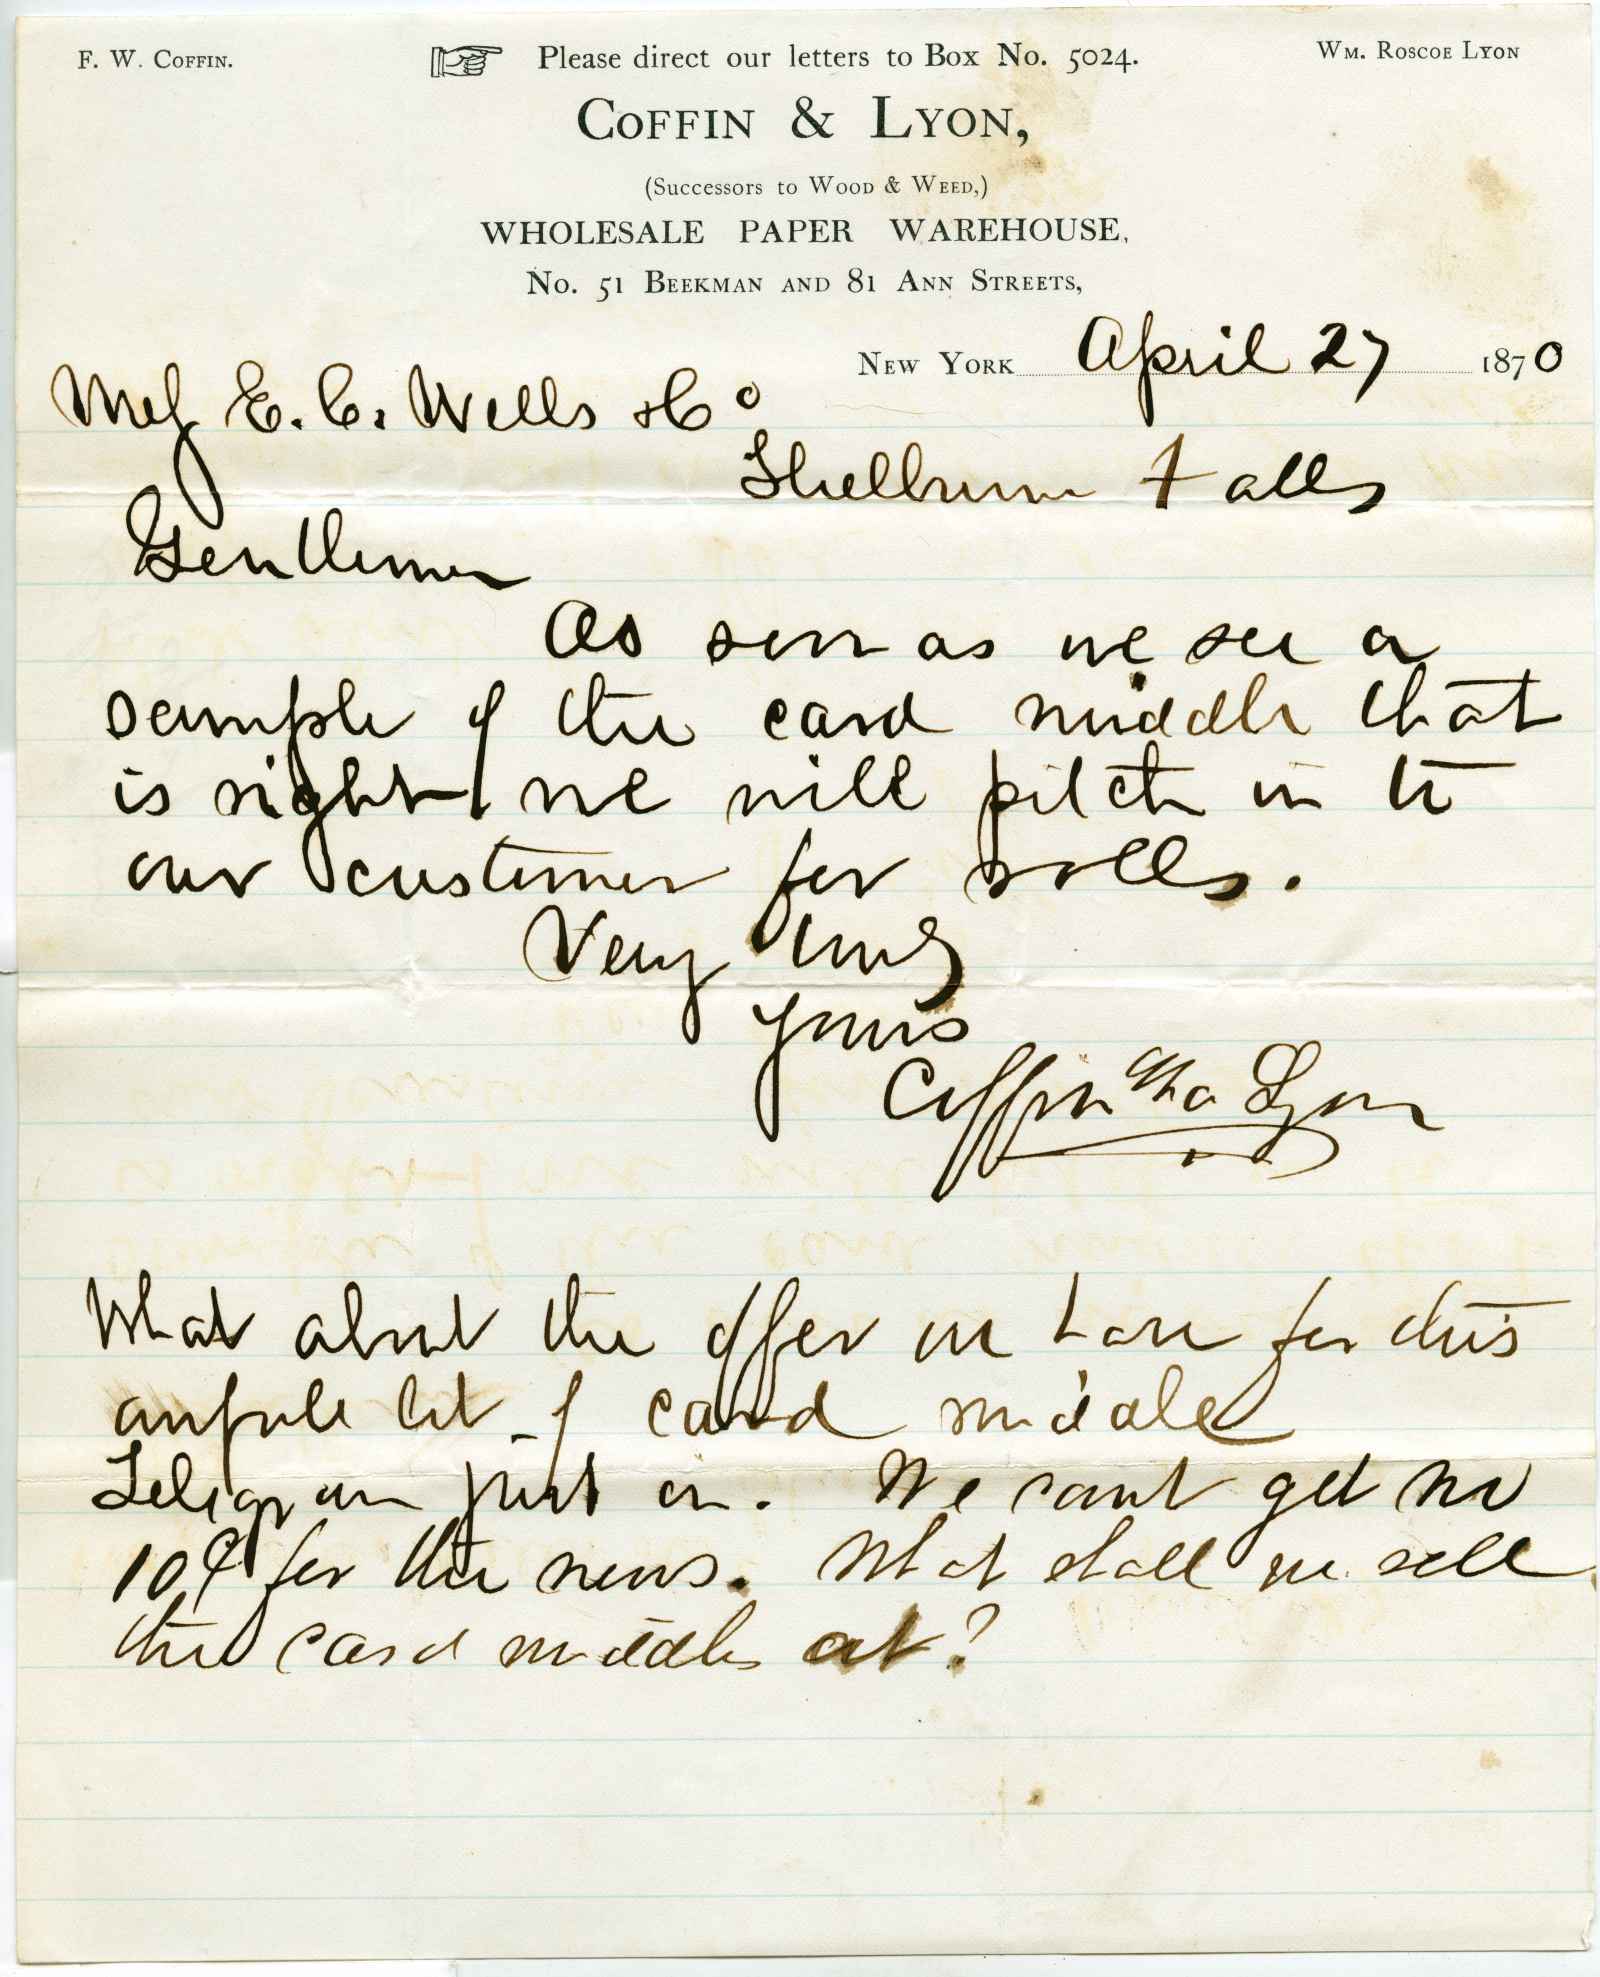 F. W. Coffin.
Please direct our letters to Box No. 5024.
Wm. Roscoe Lyon
Coffin & Lyon,
(Successors to Wood & Weed,)
WHOLESALE PAPER WAREHOUSE,
No. 51 Beekman and 81 Ann Streets,
New York April 27 1870
E. C. Wells & Co
Shelburne Falls
Gentlemen
As soon as we see a
sample of the card middle that
is right we will pitch in to
our customer for rolls.
Very truly
yours
Coffin & Lyon
What about the offer we have for this
lot of card middle
Telegram just in. We cant get no
10¢ for the news. What shall we sell
the card middles at?